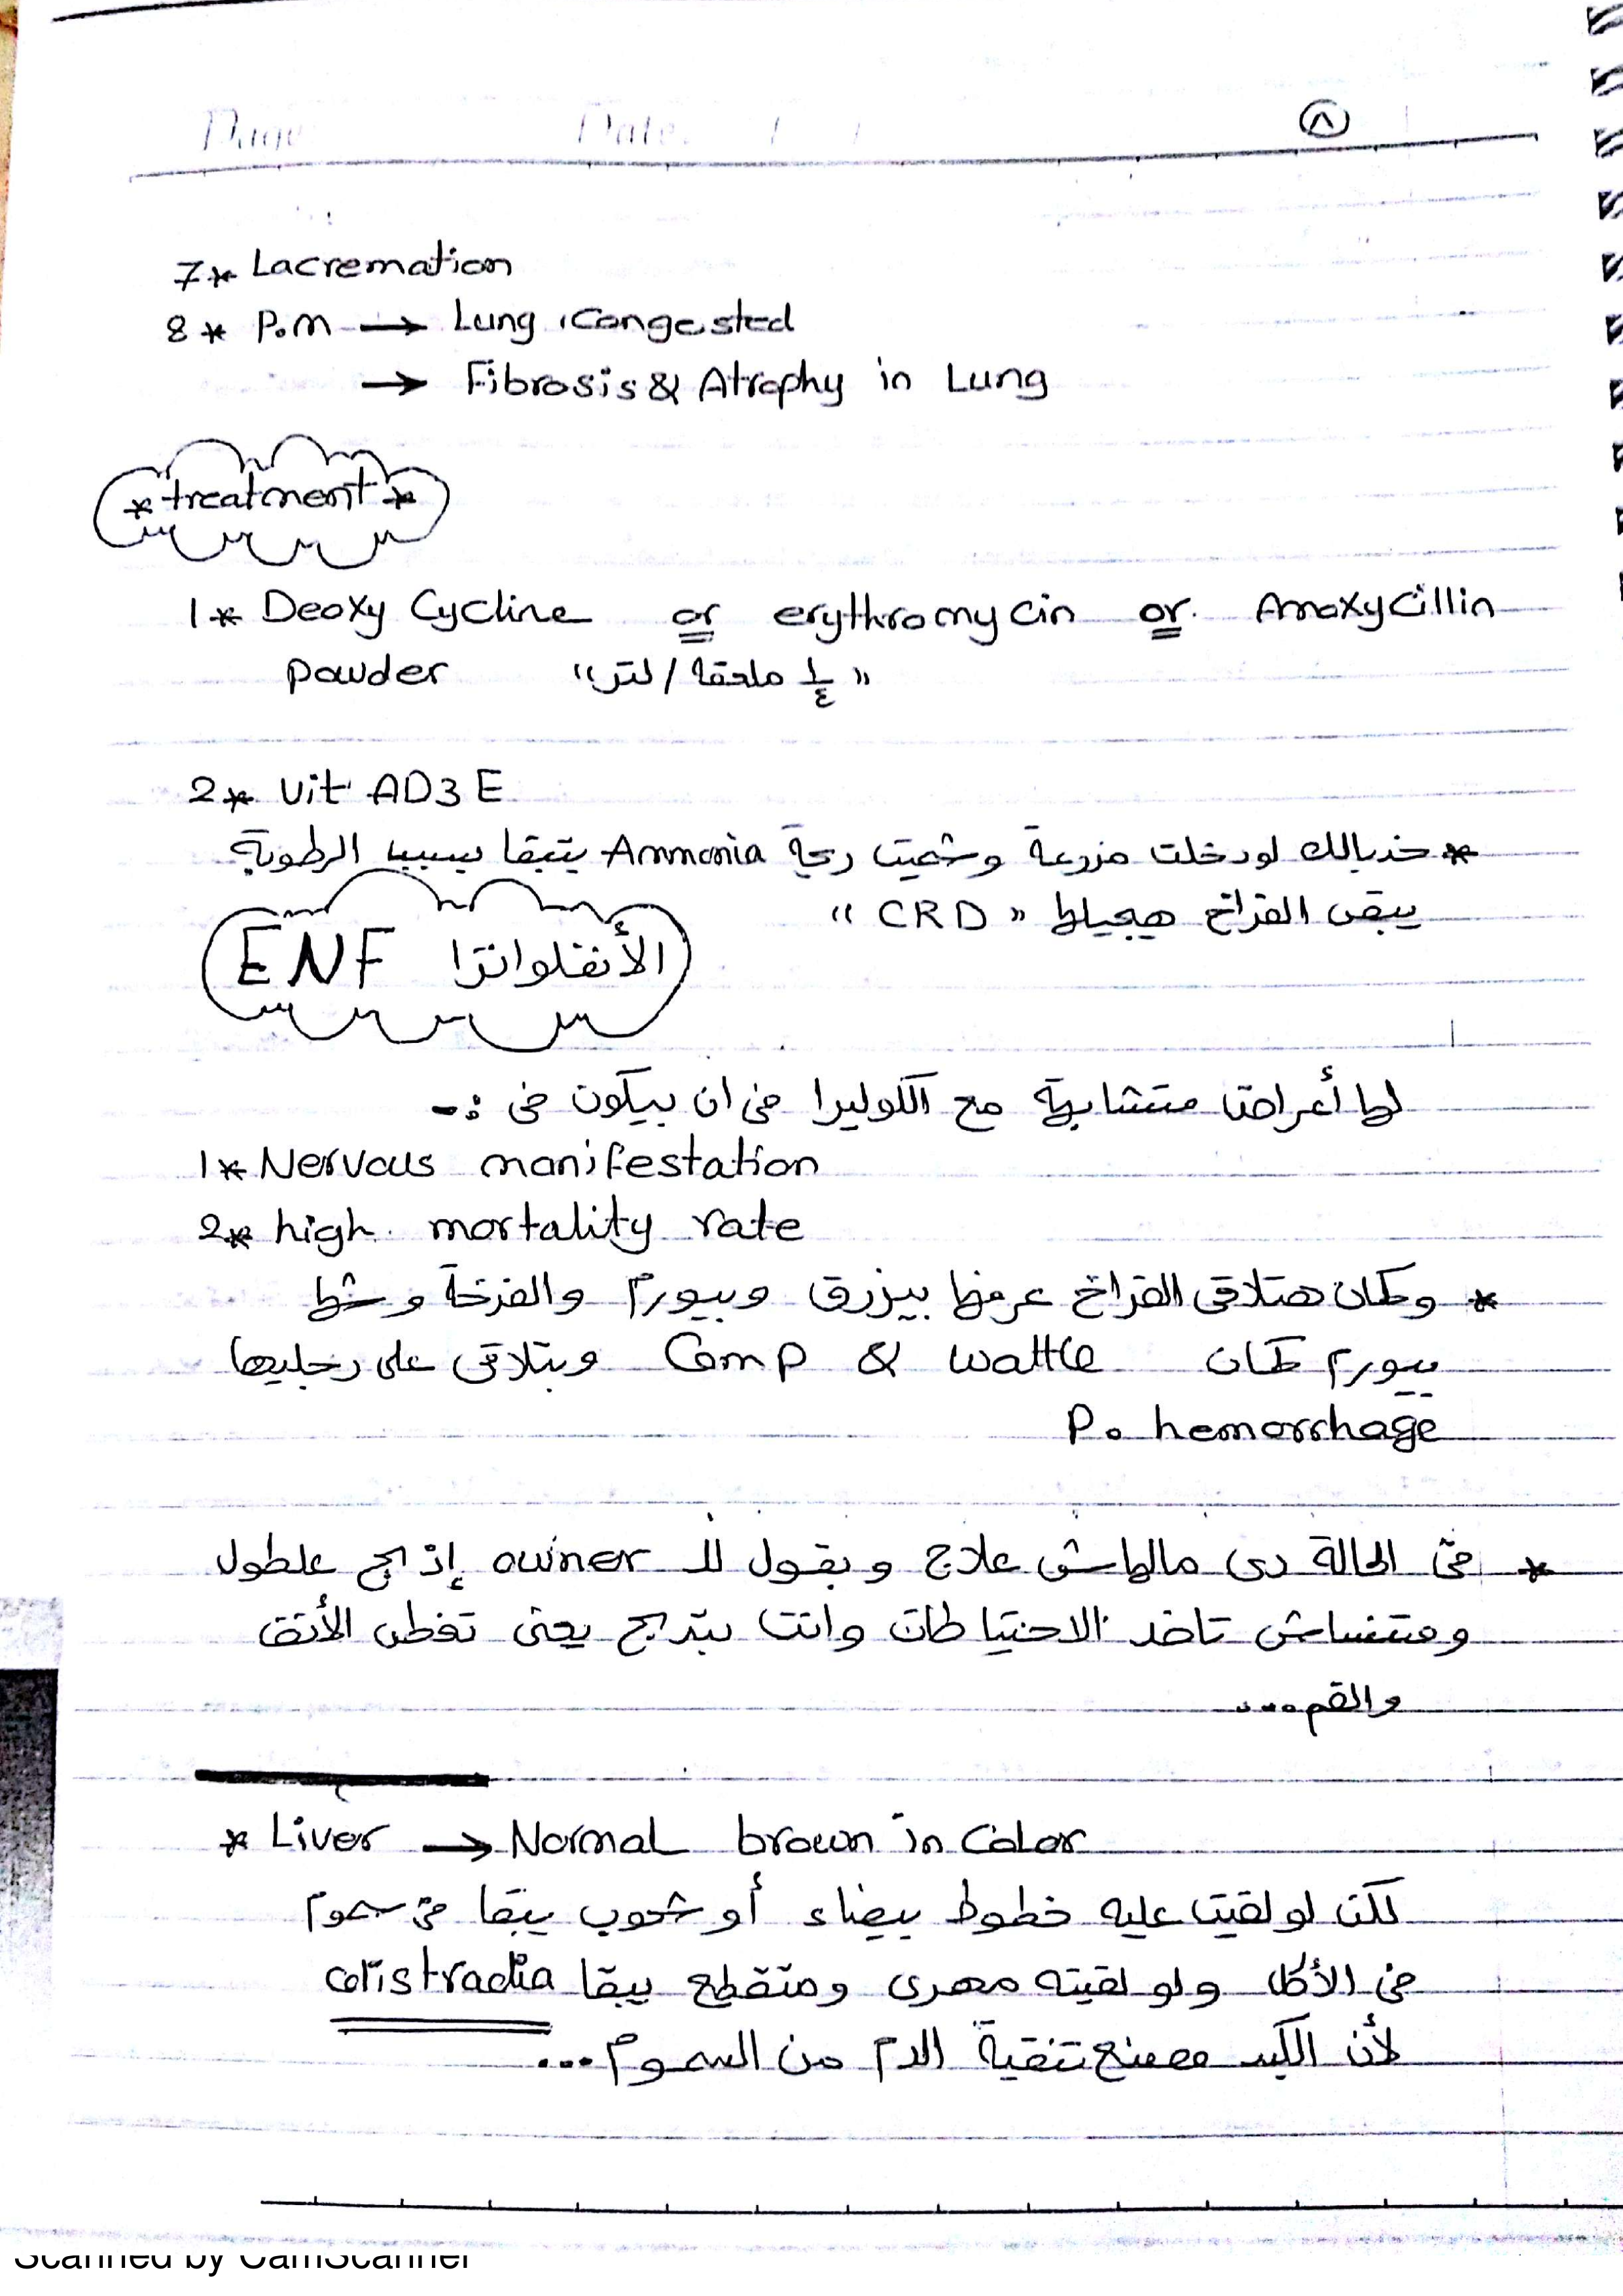 Page Date: / /
٨
7* Lacremation
8* P.M → Lung Congested
→ Fibrosis & Atrophy in Lung
* treatment *
1* Deoxy Cycline or erythromycin or Amoxycillin
powder "¼ ملعقة / لتر"
2* Vit AD3E
* خد بالك لو دخلت مزرعة وشميت ريحة Ammonia يتبقا بسبب الرطوبة
يبقى الفراخ هيجيلها "CRD"
ENF الأنفلوانزا
لها أعراض متشابهة مع الكوليرا في ان بيكون في :-
1* Nervous manifestation
2* high mortality rate
* وكمان هتلاقى الفراخ عرفها بيزرق وبيورم والفرخة وشها
بيورم كمان Comp & wattle وبتلاقى على رجليها
P. hemorrhage
* فى الحالة دى مالهاش علاج وبقول للـ owner إذبح علطول
ومتنساش تاخد الاحتياطات وانت بتدبح يعنى تغطى الأنف
والفم...
* Liver → Normal brown in Color
لكن لو لقيت عليه خطوط بيضاء أو شحوب يبقا فى سموم
فى الأكل ولو لقيته مهرى ومتقطع يبقا
لأن الكبد مصنع تنقية الدم من السموم...
Scanned by CamScanner